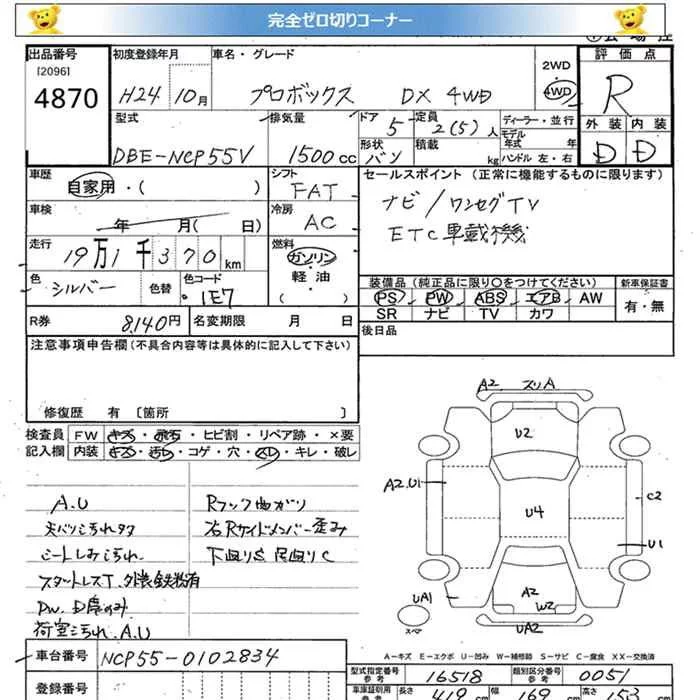 完全ゼロ切りコーナー
出品番号
[2096]
4870
初度登録年月
H24 10月
車名・グレード
プロボックス DX 4WD
2WD
・
4WD
評価点
R
外装 内装
D D
型式
DBE-NCP55V
排気量
1500cc
ドア
5
形状
バン
定員
2(5)人
積載
kg
ディーラー・並行
モデル
年式 年
ハンドル 左・右
車歴
自家用・( )
シフト
FAT
セールスポイント (正常に機能するものに限ります)
ナビ/ワンセグTV
ETC車載機
車検
年 月( 日)
冷房
AC
走行
19万1千370km
燃料
ガソリン
軽油
( )
色
シルバー
色替
色コード
1E7
装備品 (純正品に限り〇をつけてください)
PS PW ABS エアB AW
SR ナビ TV カワ
新車保証書
有・無
R券
8,140円
名変期限 月 日
後日品
注意事項申告欄 (不具合内容等は具体的に記入して下さい)
修復歴 有 〔箇所 〕
検査員
記入欄
FW キズ・飛石・ヒビ割・リペア跡・×要
内装 キズ・汚レ・コゲ・穴・スレ・キレ・破レ
A.U
シートしみ汚れ
スタットレスT.外装鉄粉有
荷室汚れ.A.U
Rフック曲がり
右Rサイドメンバー歪み
A2 スリA
U2
A2.U1
U4
C2
U1
UA1
A2
W2
UA2
スペア
A-キズ E-エクボ U-凹み W-補修跡 S-サビ C-腐食 XX-交換済
車台番号
NCP55-0102834
登録番号
型式指定番号
参考
16518
類別区分番号
参考
0051
車庫証明用
参考
長さ
419
cm
幅
169
cm
高さ
153
cm